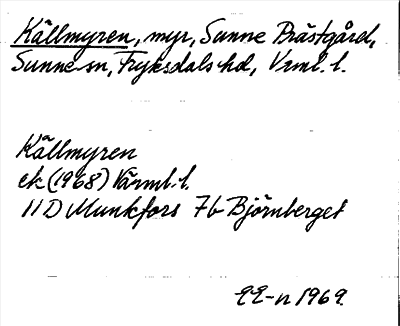 Källmyren, myr, Sunne Prästgård,
Sunne sn, Fryksdals hd, Vrml. l.
Källmyren
ek (1968) Värml. l.
11D Munkfors 7b Björnberget
EE-n 1969.